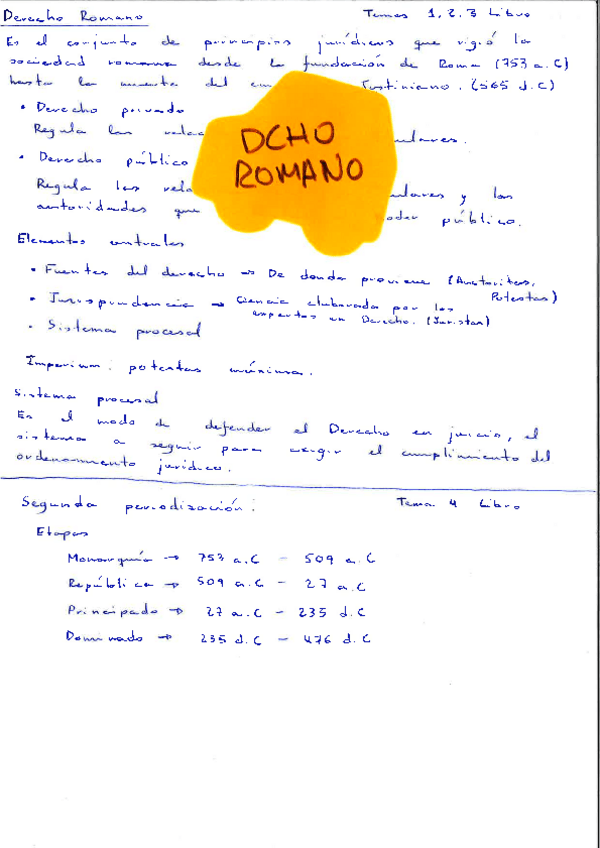 Derecho Romano Temas 1, 2, 3 Libro
Es el conjunto de principios jurídicos que rigió la
sociedad romana desde la fundación de Roma (753 a.C)
hasta la muerte del em Justiniano. (565 d.C)
• Derecho privado
Regula las relac ulares.
• Derecho público
Regula las rela ulares y las
autoridades que oder público.
DCHO
ROMANO
Elementos centrales
• Fuentes del derecho → De donde proviene (Auctoritas,
Potestas)
• Jurisprudencia → Ciencia elaborada por los
expertos en Derecho. (Juristas)
• Sistema procesal
Imperium: potestas máxima.
Sistema procesal
Es el modo de defender el Derecho en juicio, el
sistema a seguir para exigir el cumplimiento del
ordenamiento jurídico.
Segunda periodización: Tema 4 Libro
Etapas
Monarquía → 753 a.C - 509 a.C
República → 509 a.C - 27 a.C
Principado → 27 a.C - 235 d.C
Dominado → 235 d.C - 476 d.C